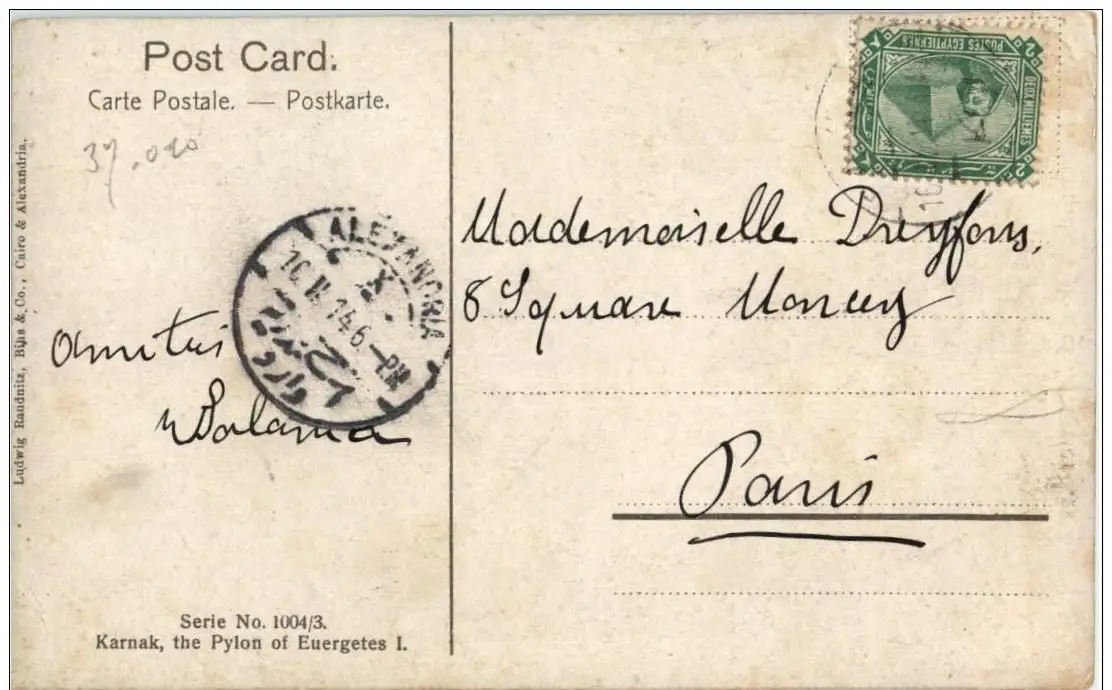 Post Card.
Carte Postale. — Postkarte.
37.020
Ludwig Raudnitz, Bihn & Co., Cairo & Alexandria.
ALEXANDRIA
10.II.14.6-PM
POSTES EGYPTIENNES
DEUX MILLIEMES
2
2
Mademoiselle Dreyfous,
8 Square Moncey
Paris
Serie No. 1004/3.
Karnak, the Pylon of Euergetes I.